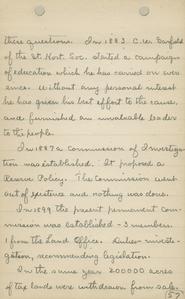 these questions. In 1883 C. W. Garfield
of the St. Hort. Soc. started a campaign
of education which he has carried on ever
since. Without any personal interest
he has given his best effort to the cause,
and furnished an invaluable leader
to the people.
In 1887 a Commission of Investiga-
tion was established. It proposed a
Reserve Policy. The Commission went
out of existence and nothing was done.
In 1899 the present permanent com-
mission was established - 3 members.
1 from the Land Office. Duties - investi-
gation, recommending legislation.
In the same year 200000 acres
of tax lands were withdrawn from sale.